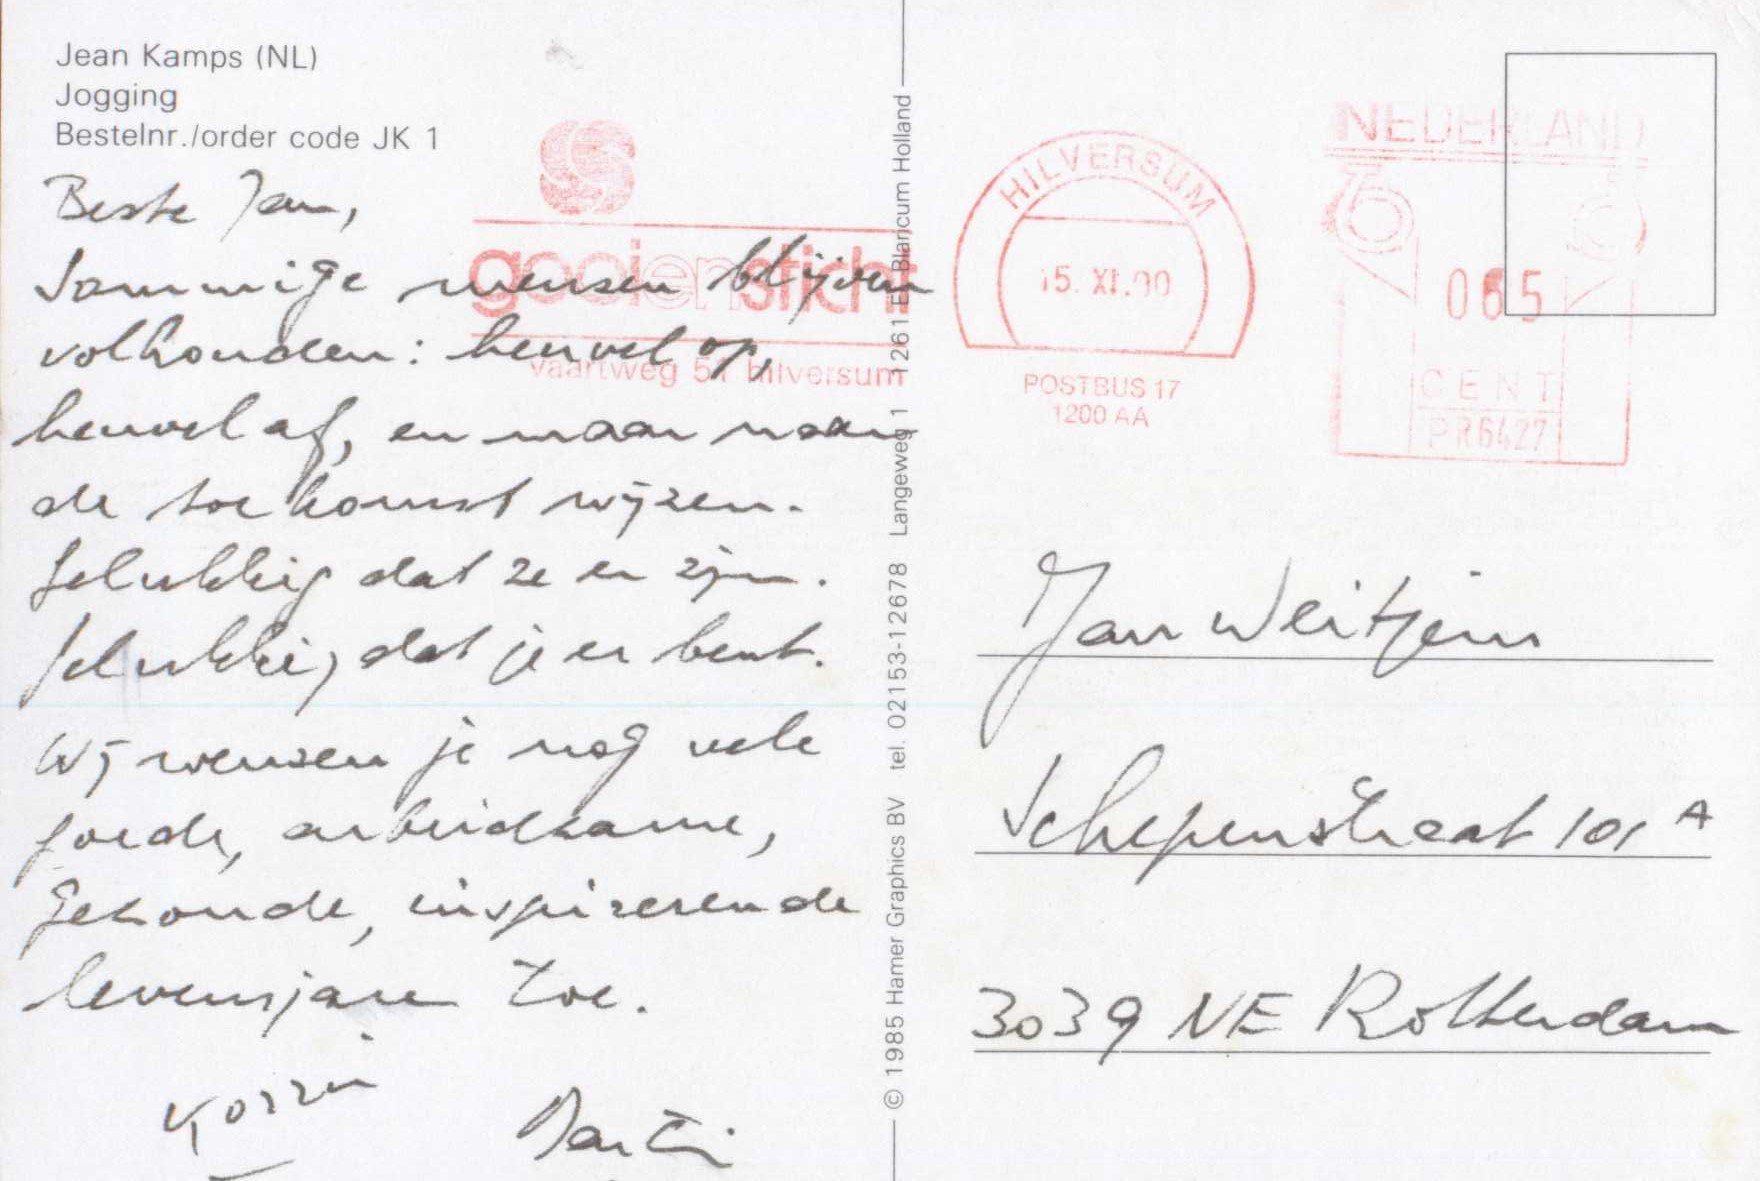 Jean Kamps (NL)
Jogging
Bestelnr./order code JK 1
Beste Jan,
Sommige mensen blijven
volhouden: heuvel op,
heuvel af, en maar naar
de toekomst wijzen.
Gelukkig dat ze er zijn.
Gelukkig dat je er bent.
Wij wensen je nog vele
goede, arbeidzame,
gezonde, inspirerende
levensjaren toe.
gooiensticht
vaartweg 51 hilversum
© 1985 Hamer Graphics BV tel. 02153-12678 Langeweg 1 1261 E Blaricum Holland
HILVERSUM
15. XI.90
POSTBUS 17
1200 AA
NEDERLAND
065
CENT
PR6427
Jan Weitjens
Schepenstraat 101 A
3039 NE Rotterdam